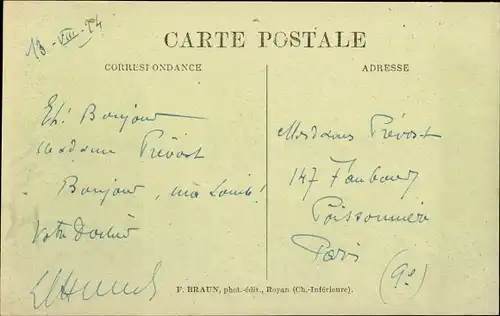 13-VIII-24
CARTE POSTALE
CORRESPONDANCE
ADRESSE
Eh! Bonjour
Madame Prévost
Bonjour, ma Louise!
Votre
Mesdames Prévost
147 Faubourg
Poissonnière
Paris
(9e)
F. BRAUN, phot.-édit., Royan (Ch.-Inférieure).